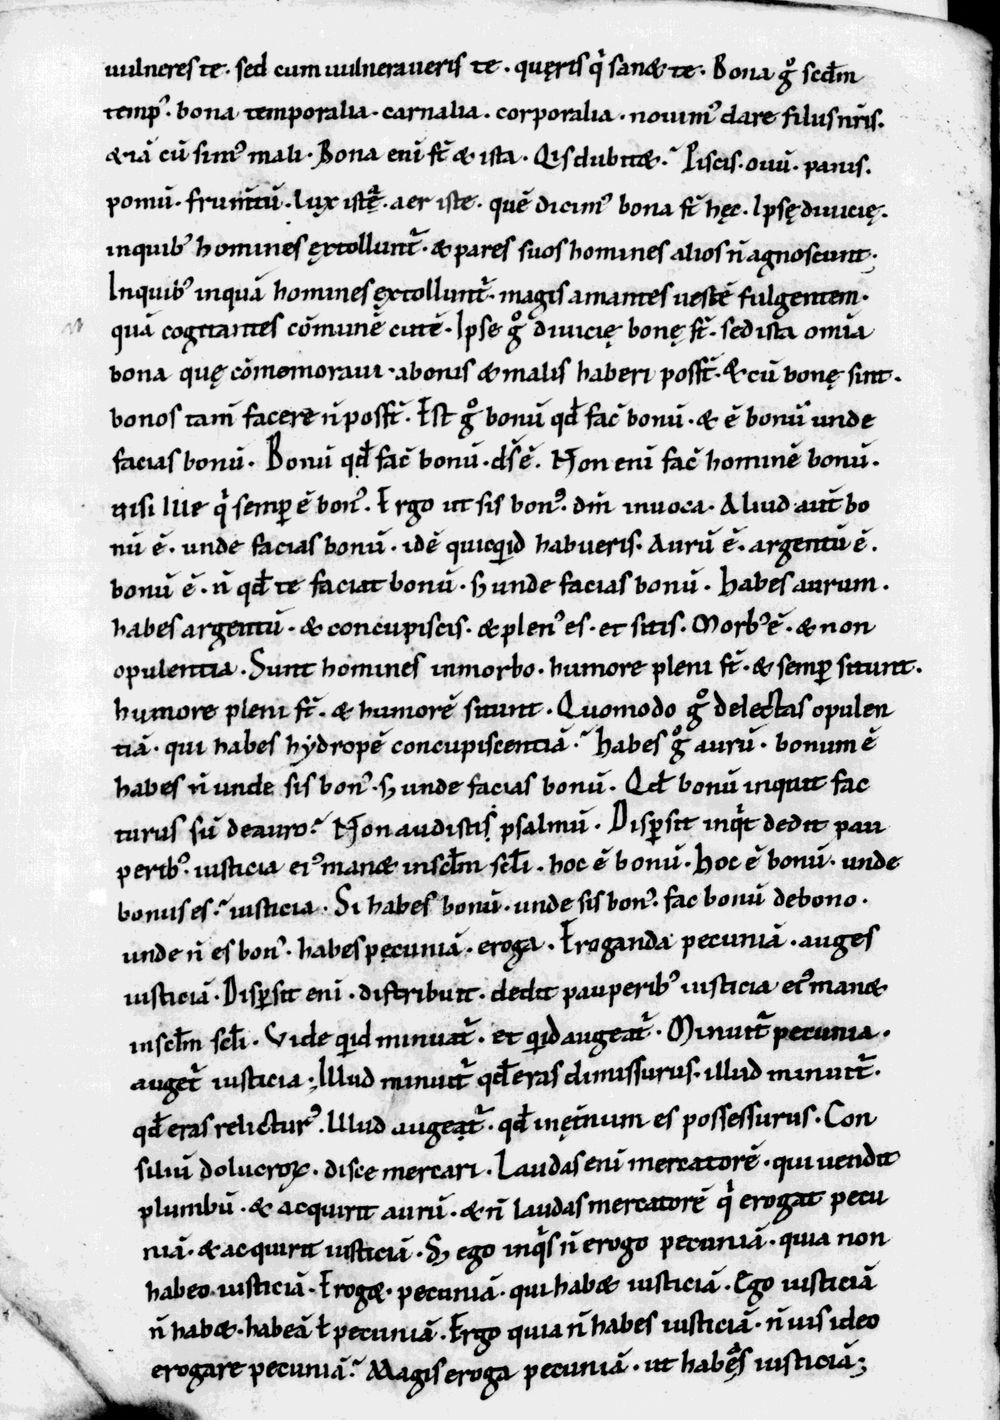 uulneres te · sed cum uulneraueris te · quęris q̇ sanet te · Bona g̊ scd̄m
temp᷒ · bona temporalia · carnalia · corporalia · nouim᷒ dare filiis nr̄is ·
& iā cū sim᷒ mali · Bona eni̅ st̅ & ista · Qis dubitæ · Piscis · ouū · panis ·
pomū · frum̄tū · lux ist̄ę · aer iste · quē dicim᷒ bona st̅ hęc · Ipsę diuicię ·
in quib᷒ homines extollunt᷑ · & pares suos homines alios n̄ agnoscunt ;
In quib᷒ inquā homines extollunt᷑ · magis amantes uestē fulgentem ·
quā cogitantes cōmunē cutē · Ipse g̊ diuicię bonę st̅ · sed ista om̄ia
bona quę cōmemoraui · abonis & malis haberi poss̄t · & cū bonę sint ·
bonos tam̄ facere n̄ poss̄t · Est g̊ bonū qd̄ fac̄ bonū · & ē bonū unde
facias bonū · Bonū qd̄ fac̄ bonū · ds̄ ē · Non eni̅ fac̄ hominē bonū ·
nisi ille q̇ semp̱ ē bon᷒ · Ergo ut sis bon᷒ · dm̄ inuoca · Aliud aut̄ bo
nū ē · unde facias bonū · idē quicq̇d habueris · Aurū ē · argentū ē ·
bonū ē · n̄ qd̄ te faciat bonū · s; unde facias bonū · habes aurum ·
habes argentū · & concupiscis · & plen᷒ es · et sitis · Morb᷒ ē · & non
opulentia · Sunt homines in morbo · humore pleni st̅ · & semp̱ sitiunt ·
humore pleni st̅ · & humorē sitiunt · Quomodo g̊ delectas opulen
tiā · qui habes hydropē concupiscentiā · habes g̊ aurū · bonum ē
habes n̄ unde sis bon᷒ · s; unde facias bonū · Qd̄ bonū inquit fac
turus su̅ de auro · Non audistis psalmū · Disp̱sit inq̇t dedit pau
perib᷒ · iusticia ei᷒ manæ in scl̄m scl̄i · hoc ē bonū · hoc ē bonū · unde
bonus es · iusticia · Si habes bonū · unde sis bon᷒ · fac bonū de bono ·
unde n̄ es bon᷒ · habes pecuniā · eroga · Eroganda pecuniā · auges
iusticiā · Disp̱sit eni̅ · distribuit · dedit pauperib᷒ iusticia ei᷒ manæ
in scl̄m scl̄i · Vide q̇d minuat᷑ · et q̇d augeat᷑ · Minuit᷑ pecunia ·
auget᷑ iusticia ; Illud minuit᷑ qd̄ eras dimissurus · illud minuit᷑ ·
qd̄ eras relictur᷒ · Illud augeat᷑ · qd̄ in ęt̄num es possessurus · Con
siliū do lucroꝝ · disce mercari · Laudas eni̅ mercatorē · qui uendit
plumbū · & acquirit aurū · & n̄ laudas mercatorē q̇ erogat pecu
niā · & acquirit iusticiā · S; ego inq̇s n̄ erogo pecuniā · quia non
habeo iusticiā · Erogæ pecuniā · qui habæ iusticiā · Ego iusticiā
n̄ habæ · habeā ł pecuniā · Ergo quia n̄ habes iusticiā · n̄ uis ideo
erogare pecuniā · Magis eroga pecuniā · ut habęs iusticiā ;